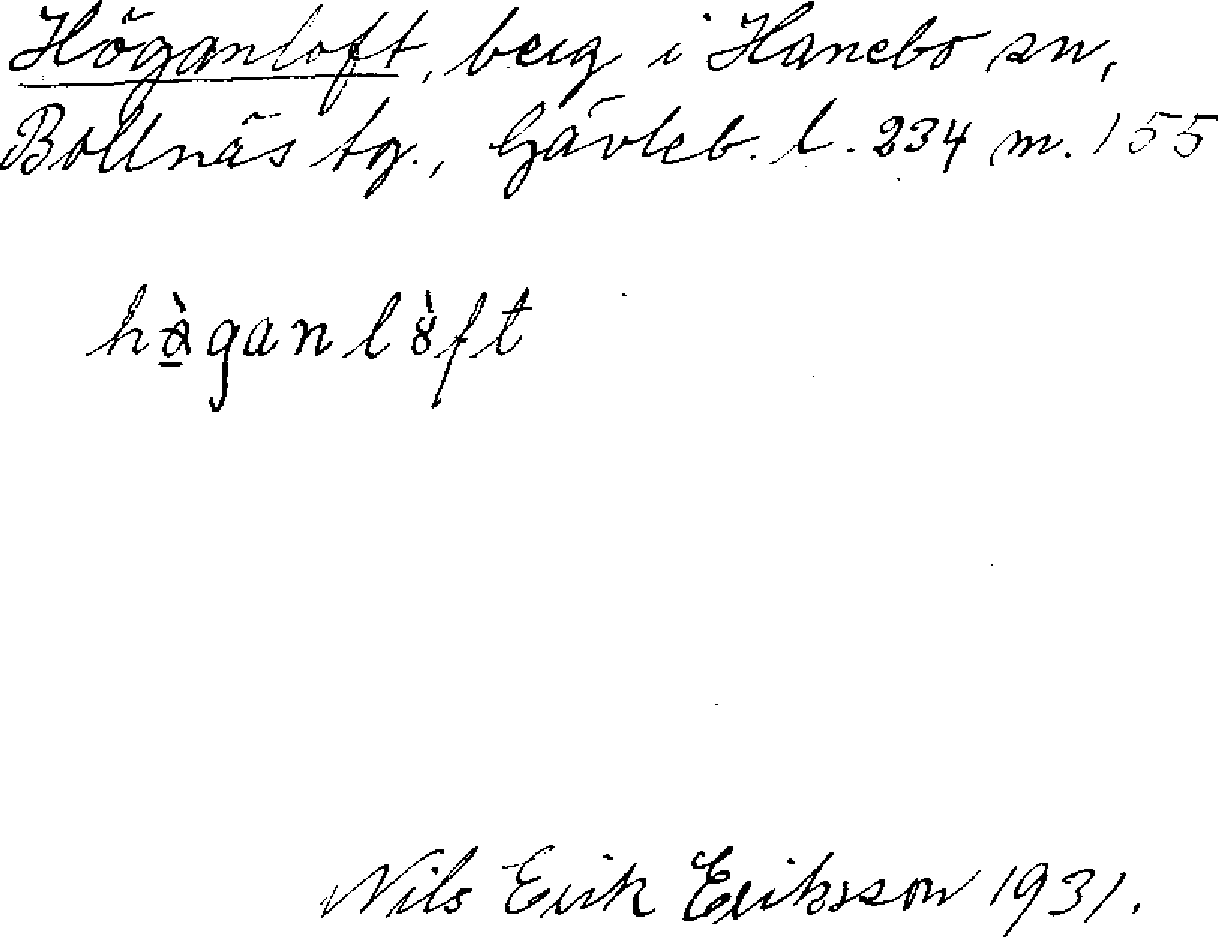 Höganloft, berg i Hanebo sn,
Bollnäs tg., Gävleb. l. 234 m. 155
Nils Erik Eriksson 1931.